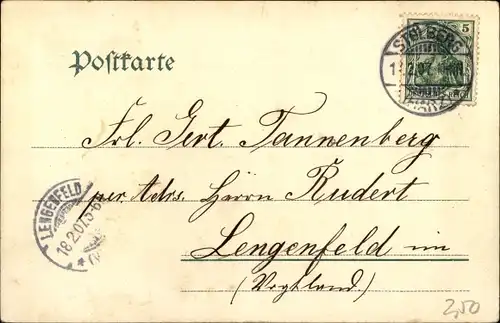 Postkarte
5
STOLBERG
(HARZ)
Frl. Gert. Tannenberg
per Adrs. Herrn Rudert
Lengenfeld im
(Vogtland.)
LENGENFELD
18.2.07.5-6
2,50